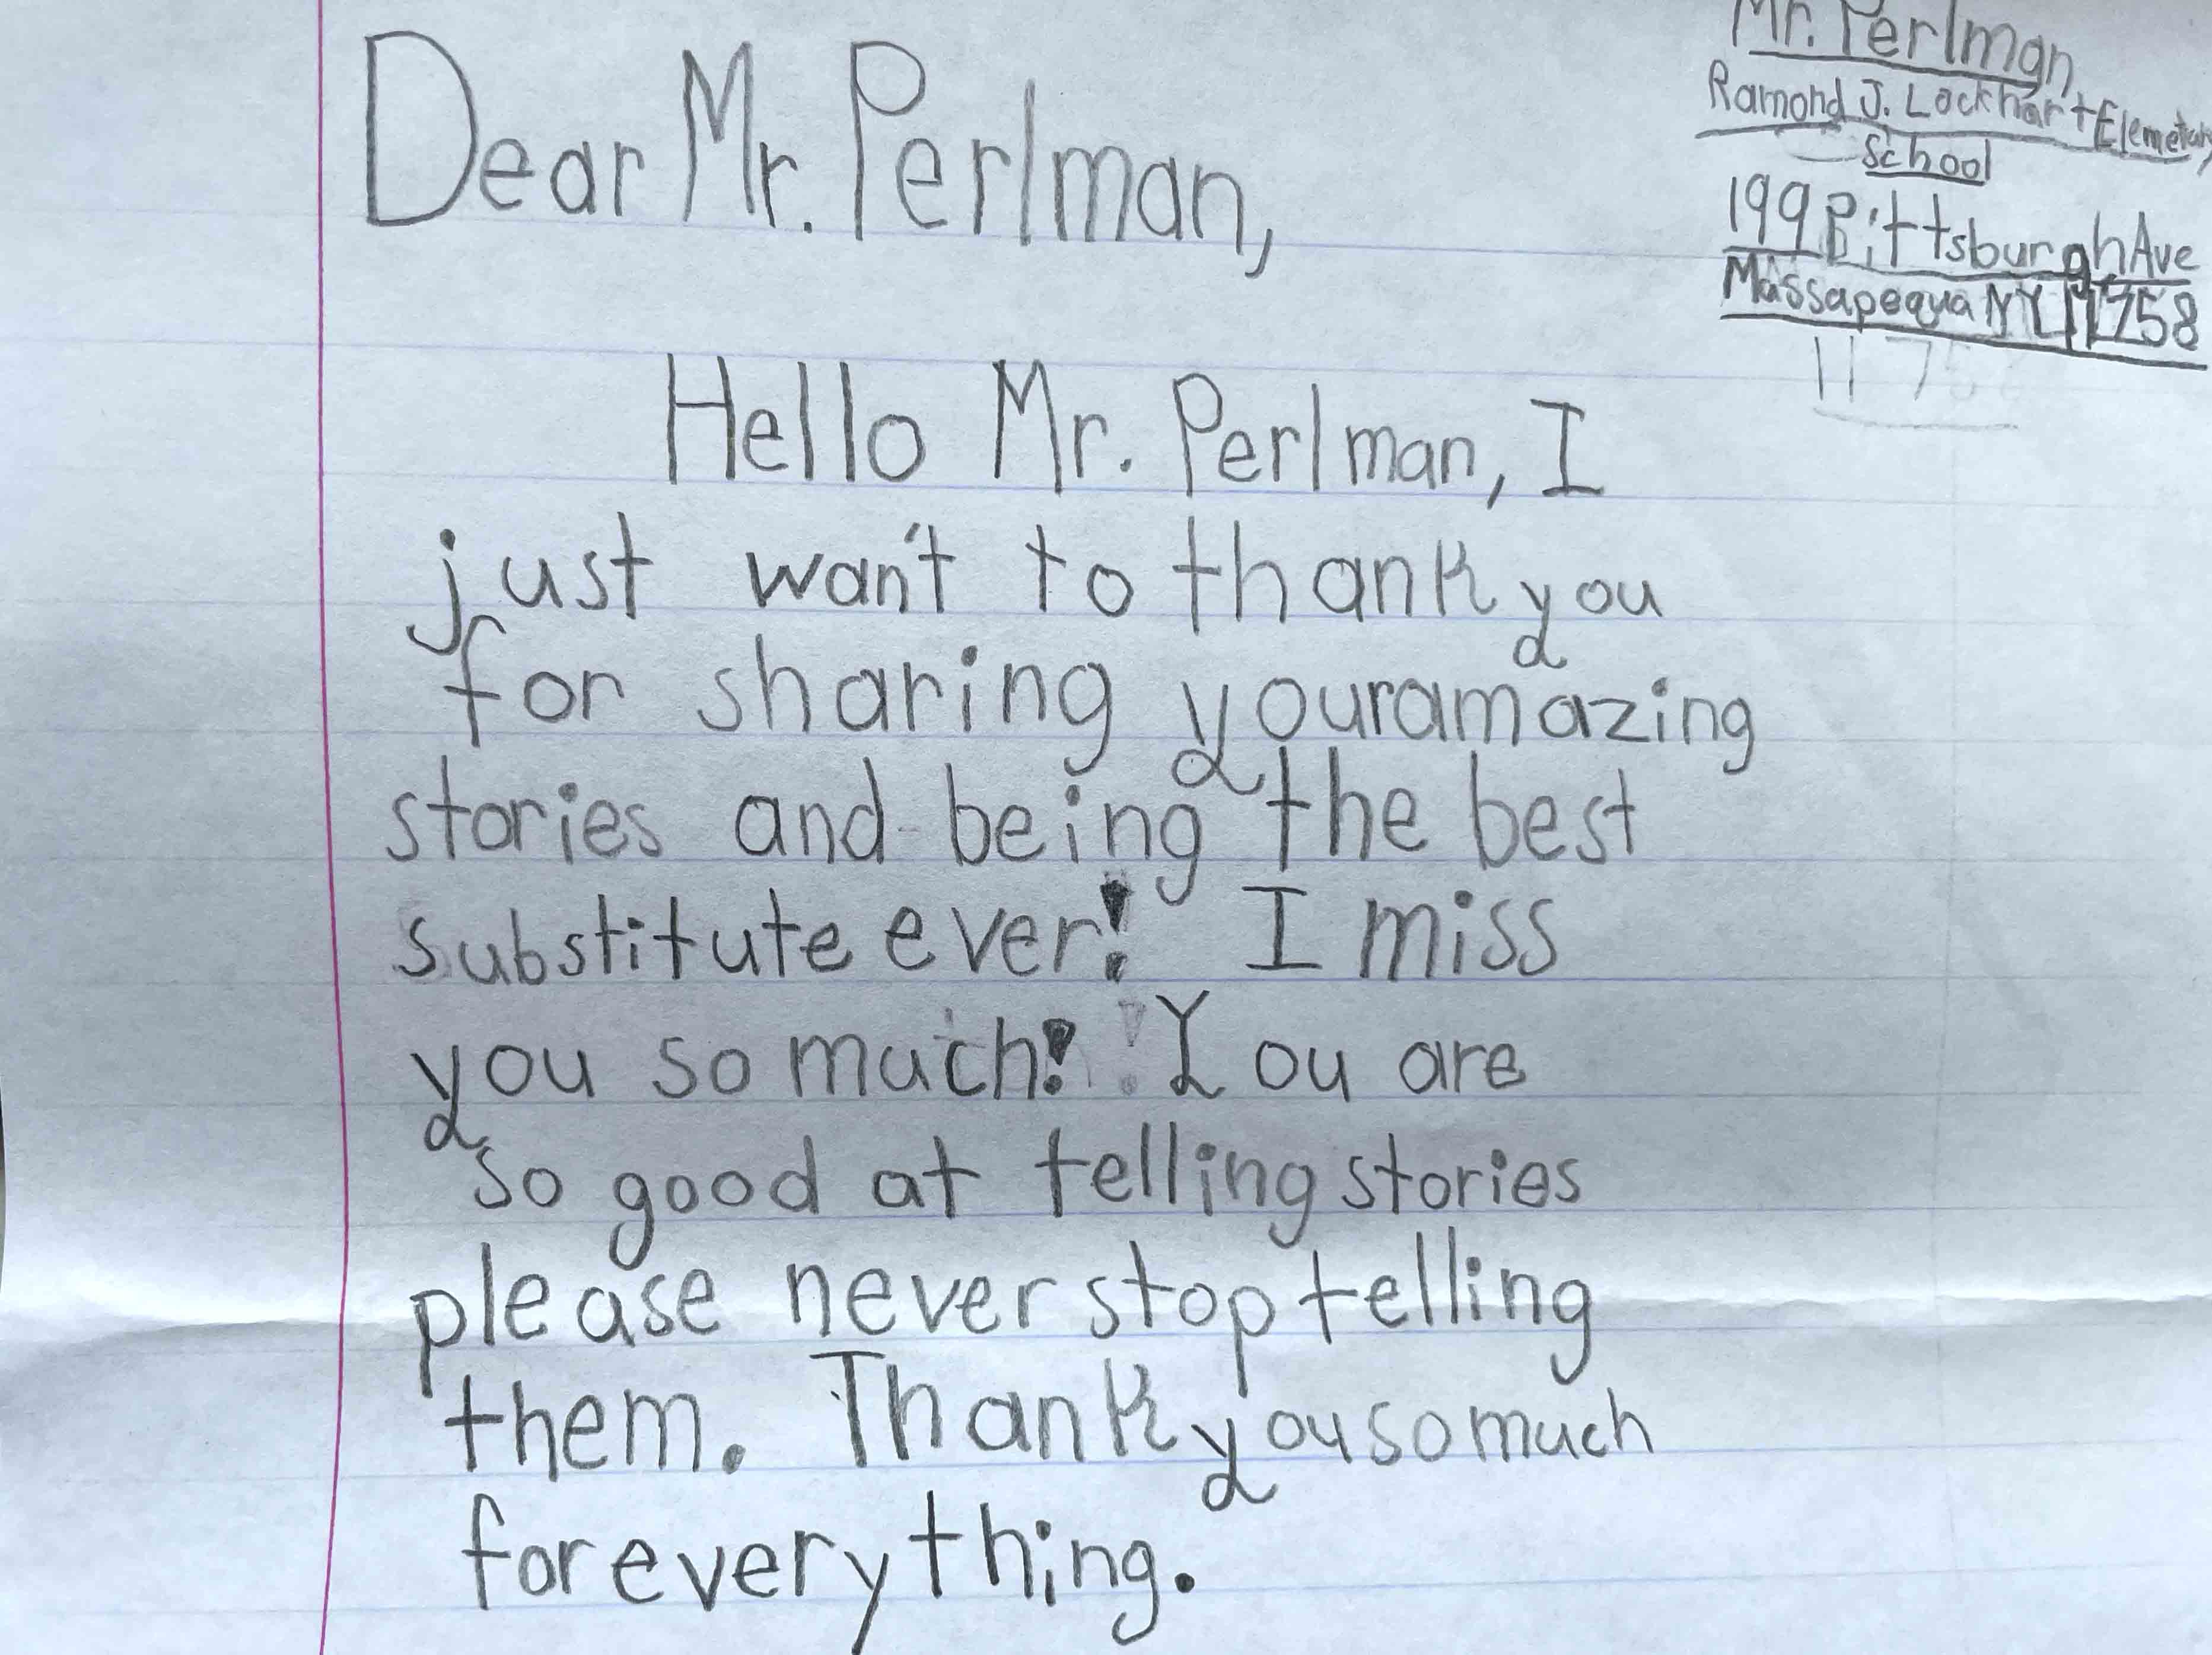 Mr. Perlman
Ramond J. Lockhart Elemetary
School
199 Pittsburgh Ave
Massapequa NY 11758
11758
Dear Mr. Perlman,
Hello Mr. Perlman, I
just wan't to thank you
for sharing your amazing
stories and being the best
substitute ever! I miss
you so much! You are
so good at telling stories
please never stop telling
them. Thank you so much
for everything.